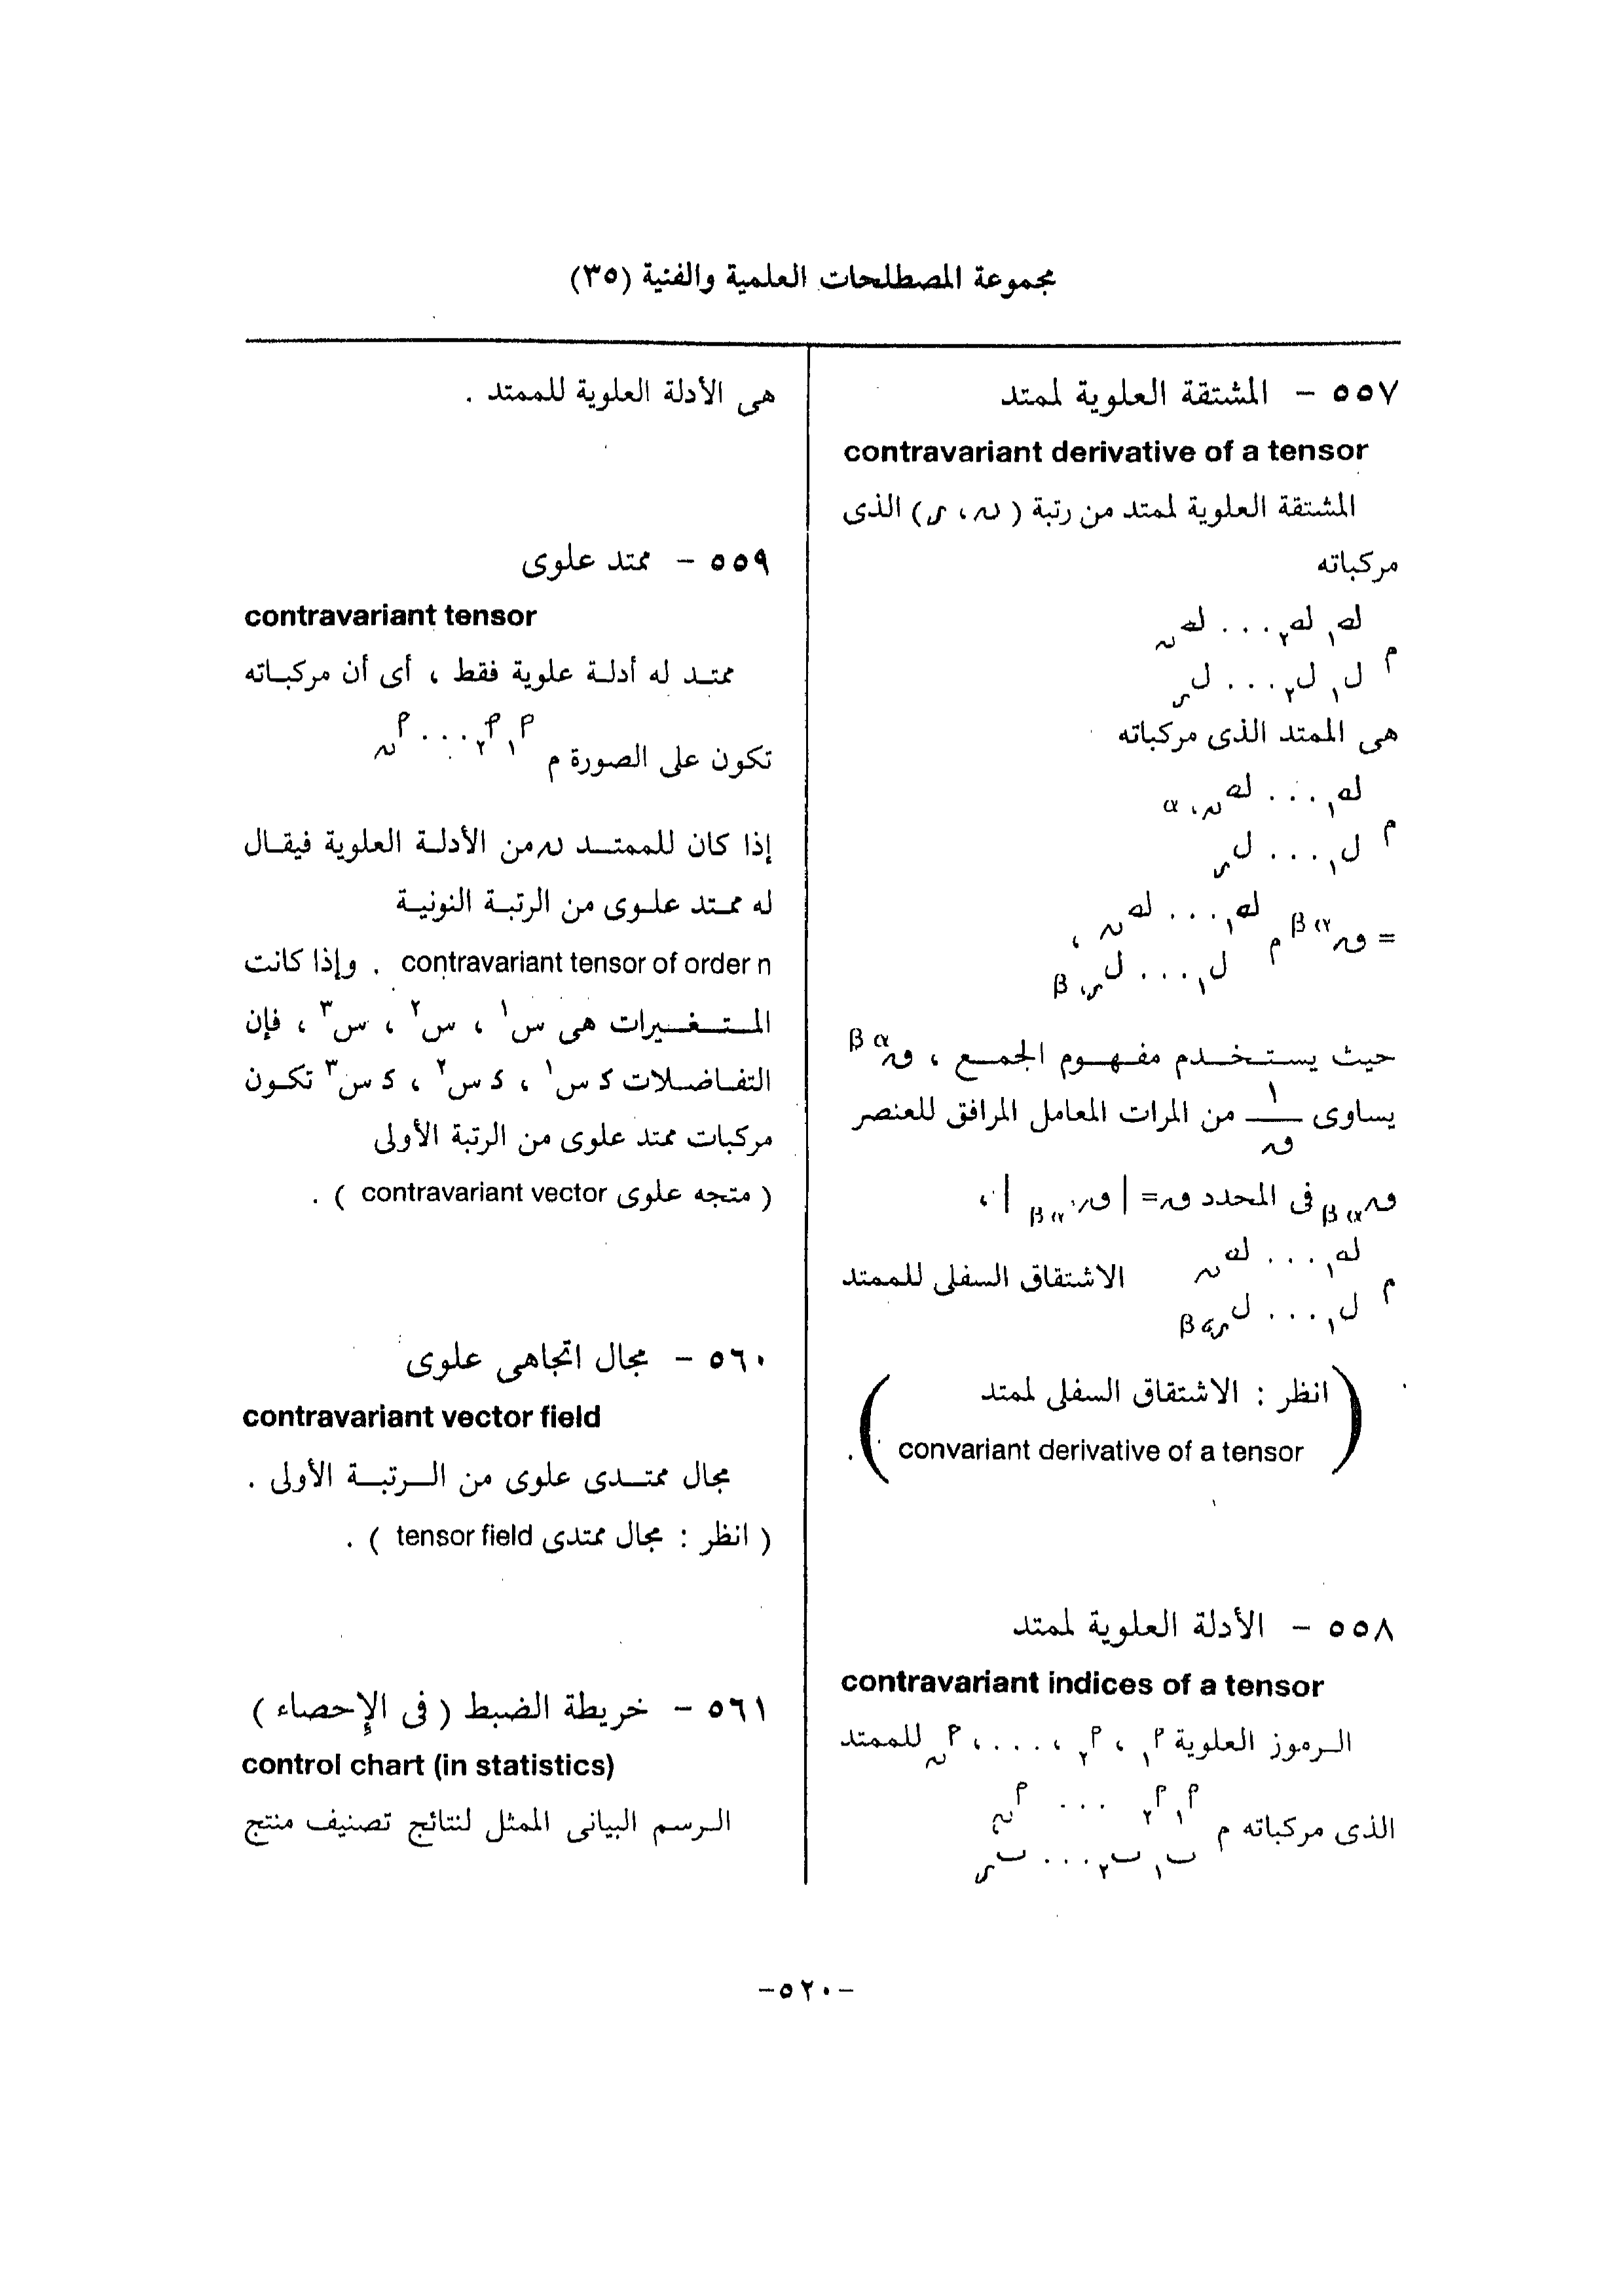 مجموعة المصطلحات العلمية والفنية (٣٥)
٥٥٧ - المشتقة العلوية لممتد
contravariant derivative of a tensor
المشتقة العلوية لممتد من رتبة ( ن ، ر ) الذى
مركباته
م ك١ ك٢ . . . كن
ل١ ل٢ . . . لر
هى الممتد الذى مركباته
م ك١ . . . كن ، α
ل١ . . . لر
= ق α β م ك١ . . . كن ،
ل١ . . . لر ، β
حيث يستخدم مفهوم الجمع ، ق α β
يساوى ١/ق من المرات المعامل المرافق للعنصر
ق α β فى المحدد ق = | ق α β | ،
م ك١ . . . كن الاشتقاق السفلى للممتد
ل١ . . . لر ، β
( انظر : الاشتقاق السفلى لممتد
convariant derivative of a tensor ) .
٥٥٨ - الأدلة العلوية لممتد
contravariant indices of a tensor
الرموز العلوية م١ ، م٢ ، . . . ، من للممتد
الذى مركباته م م١ م٢ . . . من
ب١ ب٢ . . . بر
هى الأدلة العلوية للممتد .
٥٥٩ - ممتد علوى
contravariant tensor
ممتد له أدلة علوية فقط ، أى أن مركباته
تكون على الصورة م م١ م٢ . . . من
إذا كان للممتد ن من الأدلة العلوية فيقال
له ممتد علوى من الرتبة النونية
contravariant tensor of order n . وإذا كانت
المتغيرات هى س١ ، س٢ ، س٣ ، فإن
التفاضلات د س١ ، د س٢ ، د س٣ تكون
مركبات ممتد علوى من الرتبة الأولى
( متجه علوى contravariant vector ) .
٥٦٠ - مجال اتجاهى علوى
contravariant vector field
مجال ممتدى علوى من الرتبة الأولى .
( انظر : مجال ممتدى tensor field ) .
٥٦١ - خريطة الضبط ( فى الإحصاء )
control chart (in statistics)
الرسم البيانى الممثل لنتائج تصنيف منتج
-٥٢٠-